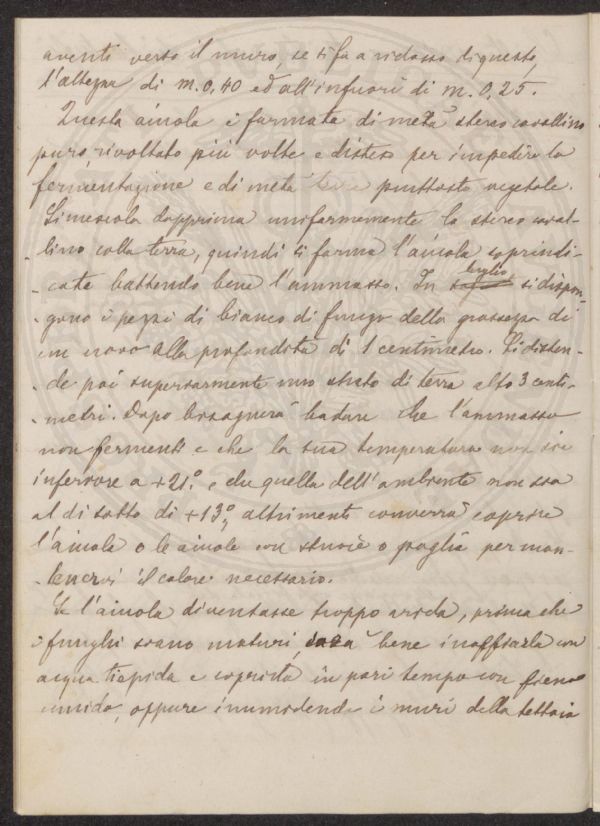 aventi verso il muro, se si fa a ridosso di questo,
l'altezza di m. 0,40 ed all'infuori di m. 0,25.
Questa aiuola è formata di metà sterco cavallino
puro, rivoltato più volte e disteso per impedire la
fermentazione e di metà terra piuttosto vegetale.
Si mescola dapprima uniformemente lo sterco caval-
-lino colla terra, quindi si forma l'aiuola sopr'indi-
-cata battendo bene l'ammasso. In luglio si dispon-
-gono i pezzi di bianco di fungo della grossezza di
un uovo alla profondità di 1 centimetro. Si disten-
-de poi superiormente uno strato di terra alto 3 centi-
-metri. Dopo bisognerà badare che l'ammasso
non fermenti e che la sua temperatura non sia
inferiore a +21.° e che quella dell'ambiente non sia
al di sotto di +13°, altrimenti converrà coprire
l'aiuola o le aiuole con stuoie o paglia per man-
-tenervi il calore necessario.
Se l'aiuola diventasse troppo arida, prima che
i funghi siano maturi, sarà bene inaffiarla con
acqua tiepida e coprirla in pari tempo con fieno
umido, oppure inumidendo i muri della tettoia